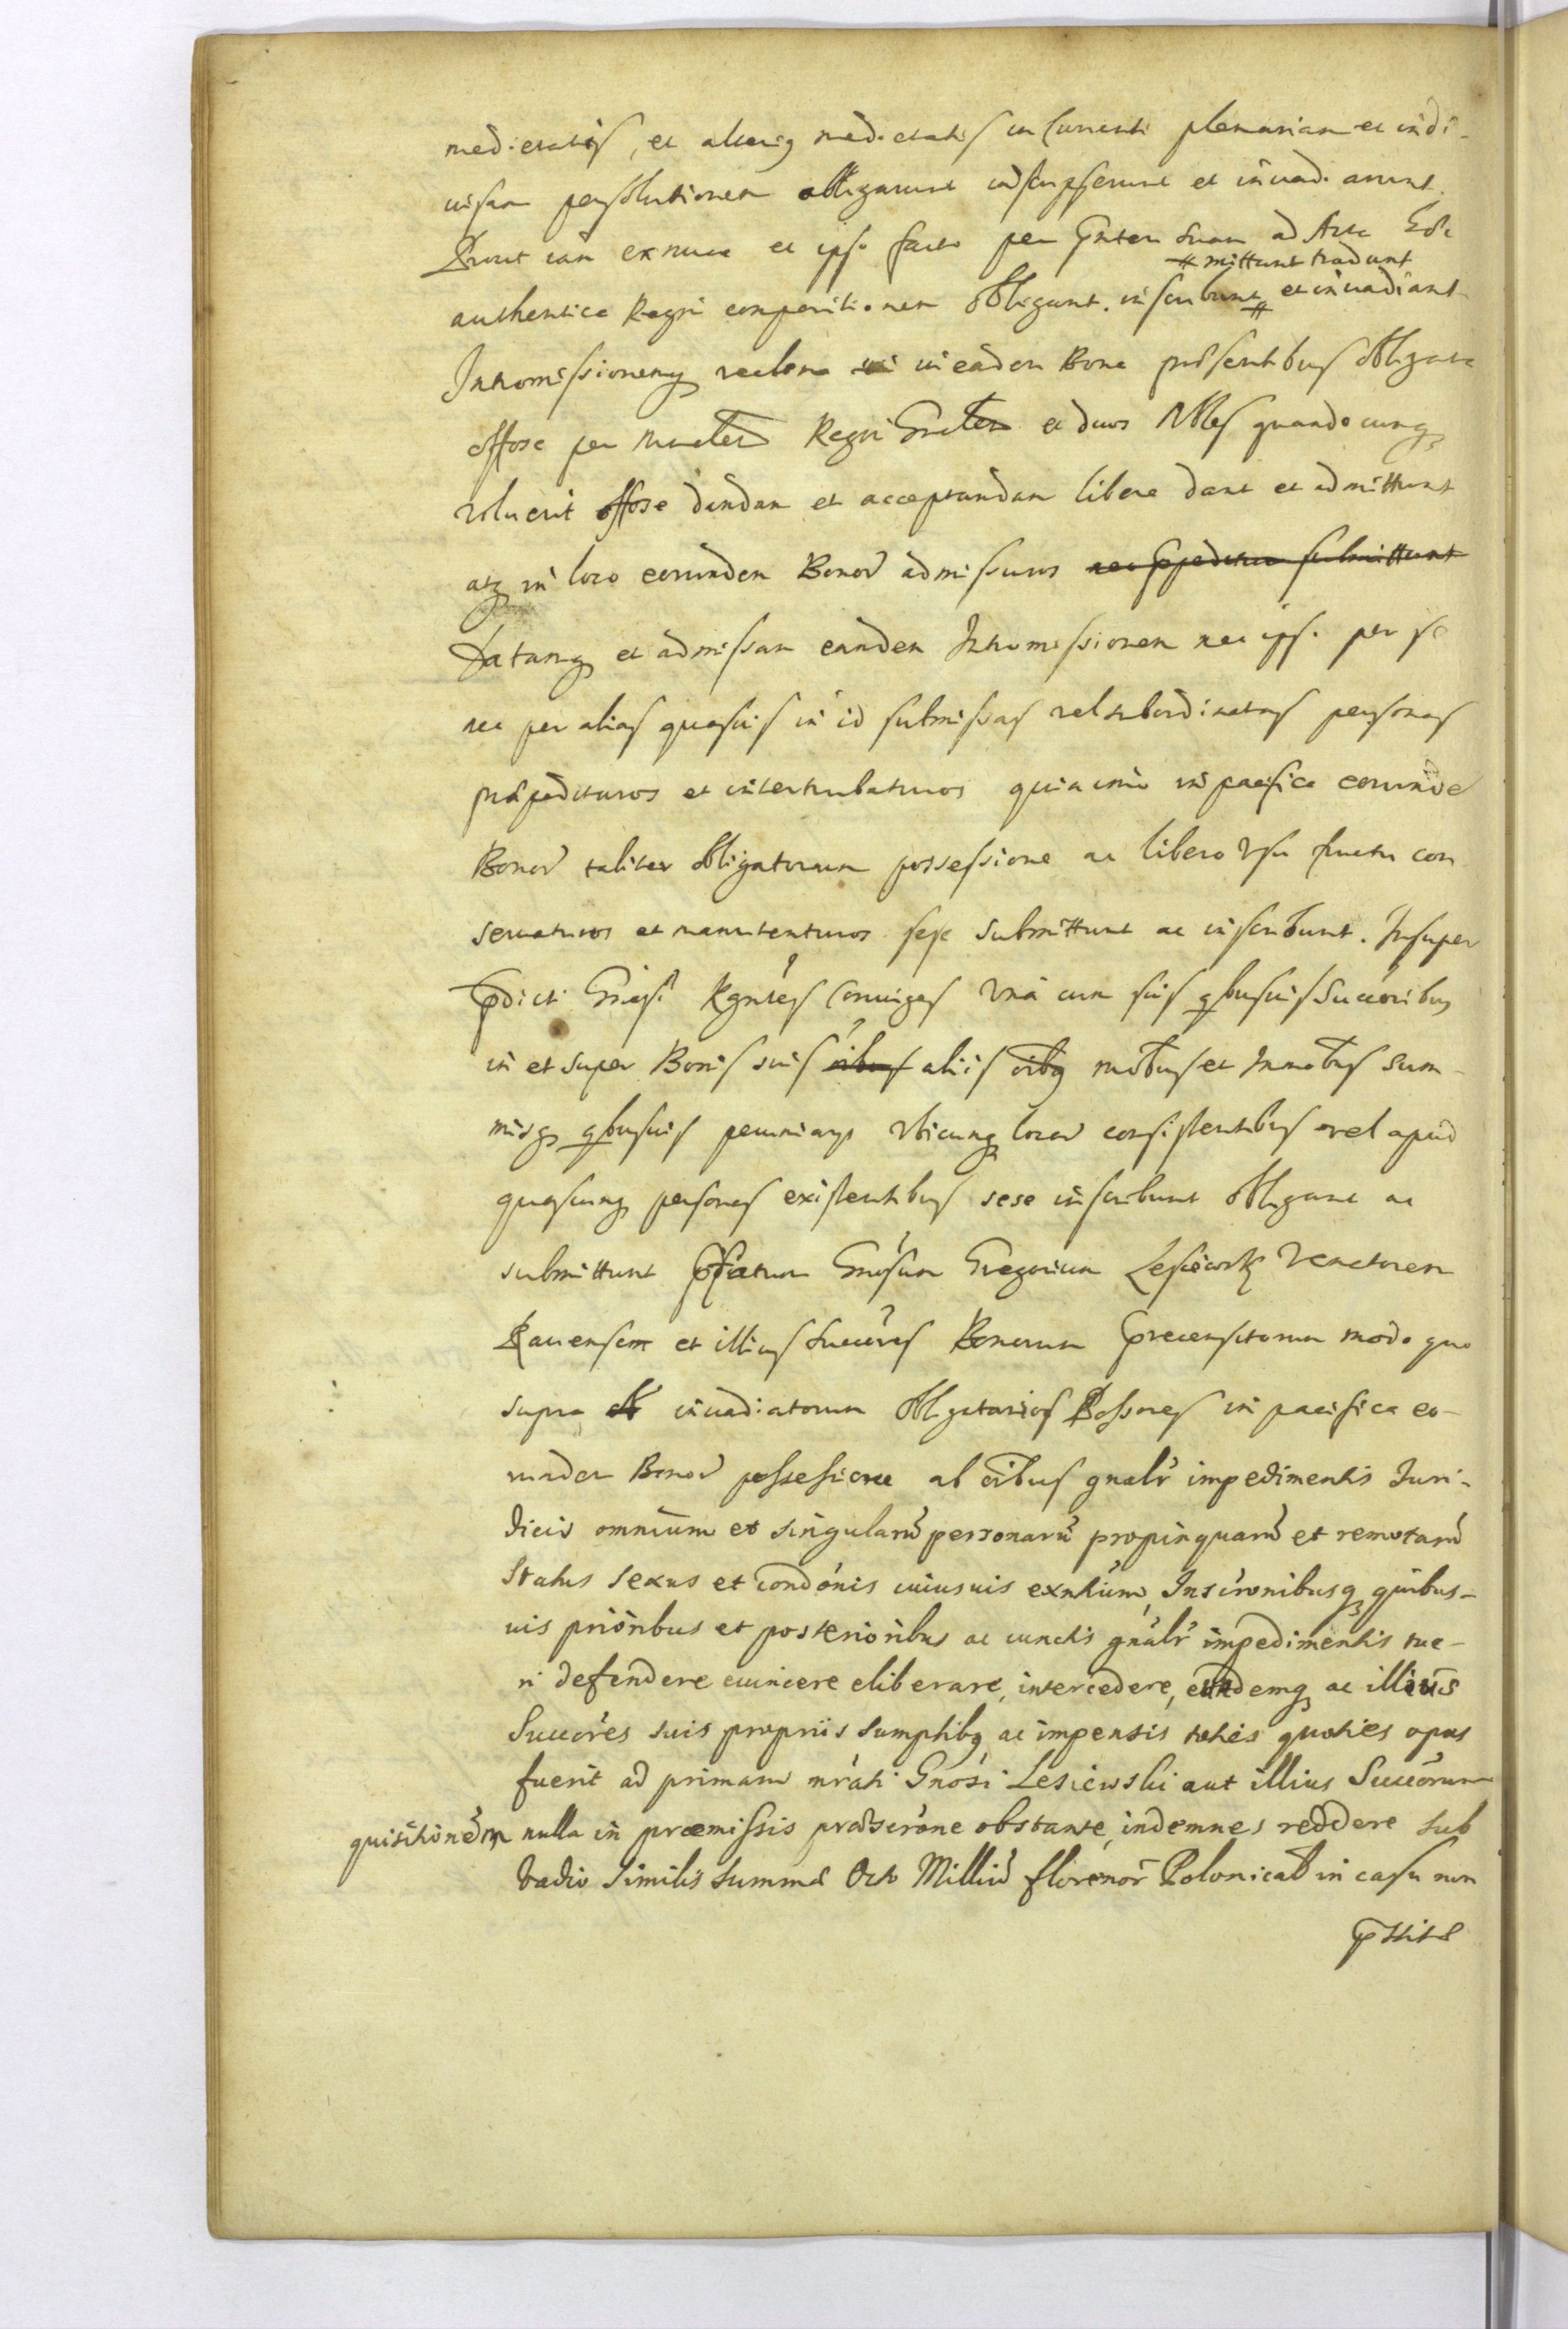 medietatis, et alterius medietatis in Currenti plenariam et indi-
uisam persolutionem obligarunt inscripserunt et inuadiarunt.
Prout iam ex nunc et ipso facto per Gnter suam ad Acta
# mittunt tradunt
authentica Regni comparitionem obligant. inscribunt # et inuadiant
Intromissionemq realem in eadem Bona prnsentibus obligata
offose per Mnrlem Regni Gnrlem et duos Nobles quandocunq
voluerit offose dandam et acceptandam libere dant et admittunt
atq in loco eorundem Bonor admissuros nec ppedituros submittunt
Datamq et admissam eandem Intromissionem nec ipsi per se
nec per alias quasuis in id submissas vel subordinatas personas
prapedituros et interturbaturos quin imo in pacifica eorunde
Bonor taliter obligatorum possessione ac libero Vsu fructu con
seruaturos et manutenturos sese submittunt ac inscribunt. Insuper
pdicti Gnosi Rgntes Coniuges Vna cum suis qbusuis Succoribus
in et super Bonis suis oibus aliis oibq mobbus et Immobbus Sum-
misq qbusuis pecuniarys Vbicunq locor consistentibus vel apud
quascunq personas existentibus sese inscribunt obligant ac
submittunt pfatum Gnosum Gregorium Lesiewsky Venatorem
Rauensem et illius Succores Bonorum precensitorum modo quo
supra inuadiatorum obligatarios Possores in pacifica eo-
rundem Bonor possessione ab oibus gnalr impedimentis Juri-
dicis omnium et singularu personaru propinquaru et remotaru
Status Sexus et condonis cuiusuis exntium, Inscronibusq quibus-
uis prioribus et posterioribus ac cunctis gnalr impedimentis tue-
ri defendere euincere eliberare, intercedere, eundemq ac illius
Succores suis proprijs Sumptibq ac impensis toties quoties opus
fuerit ad primam mrati Gnosi Lesiewski aut illius Succorum
quisitionem nulla in præmissis præscrone obstante, indemnes reddere Sub
Vadio Similis Summæ Octo Milliu florenor Polonical in casu non
pstite